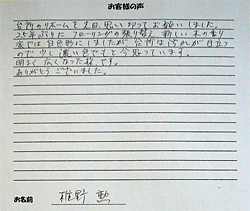 お客様の声
台所のリホームを先日、思い切ってお願いしました。
25年ぶりに フローリングの張り替え 新しい木の香り
床では白色形にしましたが 台所は汚れが目立つ
ので少し濃い色でもと今思っています。
明るく広くなった様です。
ありがとうございました。
お名前 椎野 勲